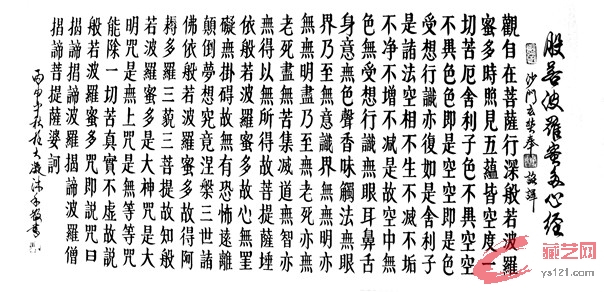 般若波羅蜜多心經
沙門玄奘奉詔譯
觀自在菩薩行深般若波羅
蜜多時照見五蘊皆空度一
切苦厄舍利子色不異空空
不異色色即是空空即是色
受想行識亦復如是舍利子
是諸法空相不生不滅不垢
不净不增不减是故空中無
色無受想行識無眼耳鼻舌
身意無色聲香味觸法無眼
界乃至無意識界無無明亦
無無明盡乃至無老死亦無
老死盡無苦集滅道無智亦
無得以無所得故菩提薩埵
依般若波羅蜜多故心無罣
礙無掛礙故無有恐怖遠離
顛倒夢想究竟涅槃三世諸
佛依般若波羅蜜多故得阿
耨多羅三藐三菩提故知般
若波羅蜜多是大神咒是大
明咒是無上咒是無等等咒
能除一切苦真實不虛故說
般若波羅蜜多咒即說咒曰
揭諦揭諦波羅揭諦波羅僧
揭諦菩提薩婆訶
丙申年秋
藏艺网
ys121.com